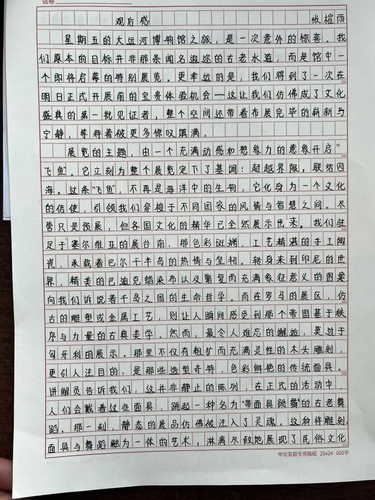 观后感 张楦雨
星期五的大运河博物馆之旅，是一次意外的惊喜。我
们原本的目标并非那条闻名遐迩的古老水道，而是馆中一
个即将启幕的特别展览。更幸运的是，我们得到了一次在
明日正式开展前的宝贵体验机会——这让我们仿佛成了文化
盛典的第一批见证者，整个空间还带着布展完毕的崭新与
宁静，等待着被更多惊叹填满。
展览的主题，由一个充满动感和想象力的意象开启
飞鱼。它立刻为整个展览定下了基调：超越界限，联结四
海。这条“飞鱼”，不再是海洋中的生物，它化身为一个文化
的信使，引领我们穿梭于不同国家的风情与智慧之间。尽
管只是预展，但各国文化的精华已全然展示出来。我们驻
足于塞尔维亚的展台前，那色彩斑斓、工艺精湛的手工陶
瓷，承载着巴尔干半岛的热情与坚韧。转身来到印尼的世
界，精美的巴迪克蜡染布以及繁复而充满象征意义的图案
向我们诉说着千岛之国的生命哲学。而在罗马的展区，仿
古的雕塑或金属工艺，则让人瞬间感受到那个帝国基于秩
序与力量的古典美学。然而，最令人难忘的邂逅，莫过于
匈牙利的展示。那里不仅有粗犷而充满灵性的木头雕刻，
更引人注目的，是那些造型奇特、色彩鲜艳的传统面具。
讲解员告诉我们，这并非静止的陈列，在正式的活动中，
人们会戴着这些面具，跳起一种名为“带面具跳舞”的古老舞
蹈。那一刻，静态的展品仿佛被注入了灵魂，这种将雕刻、
面具与舞蹈融为一体的艺术，淋漓尽致地展现了民俗文化
申论答题专用稿纸 25x24 600字